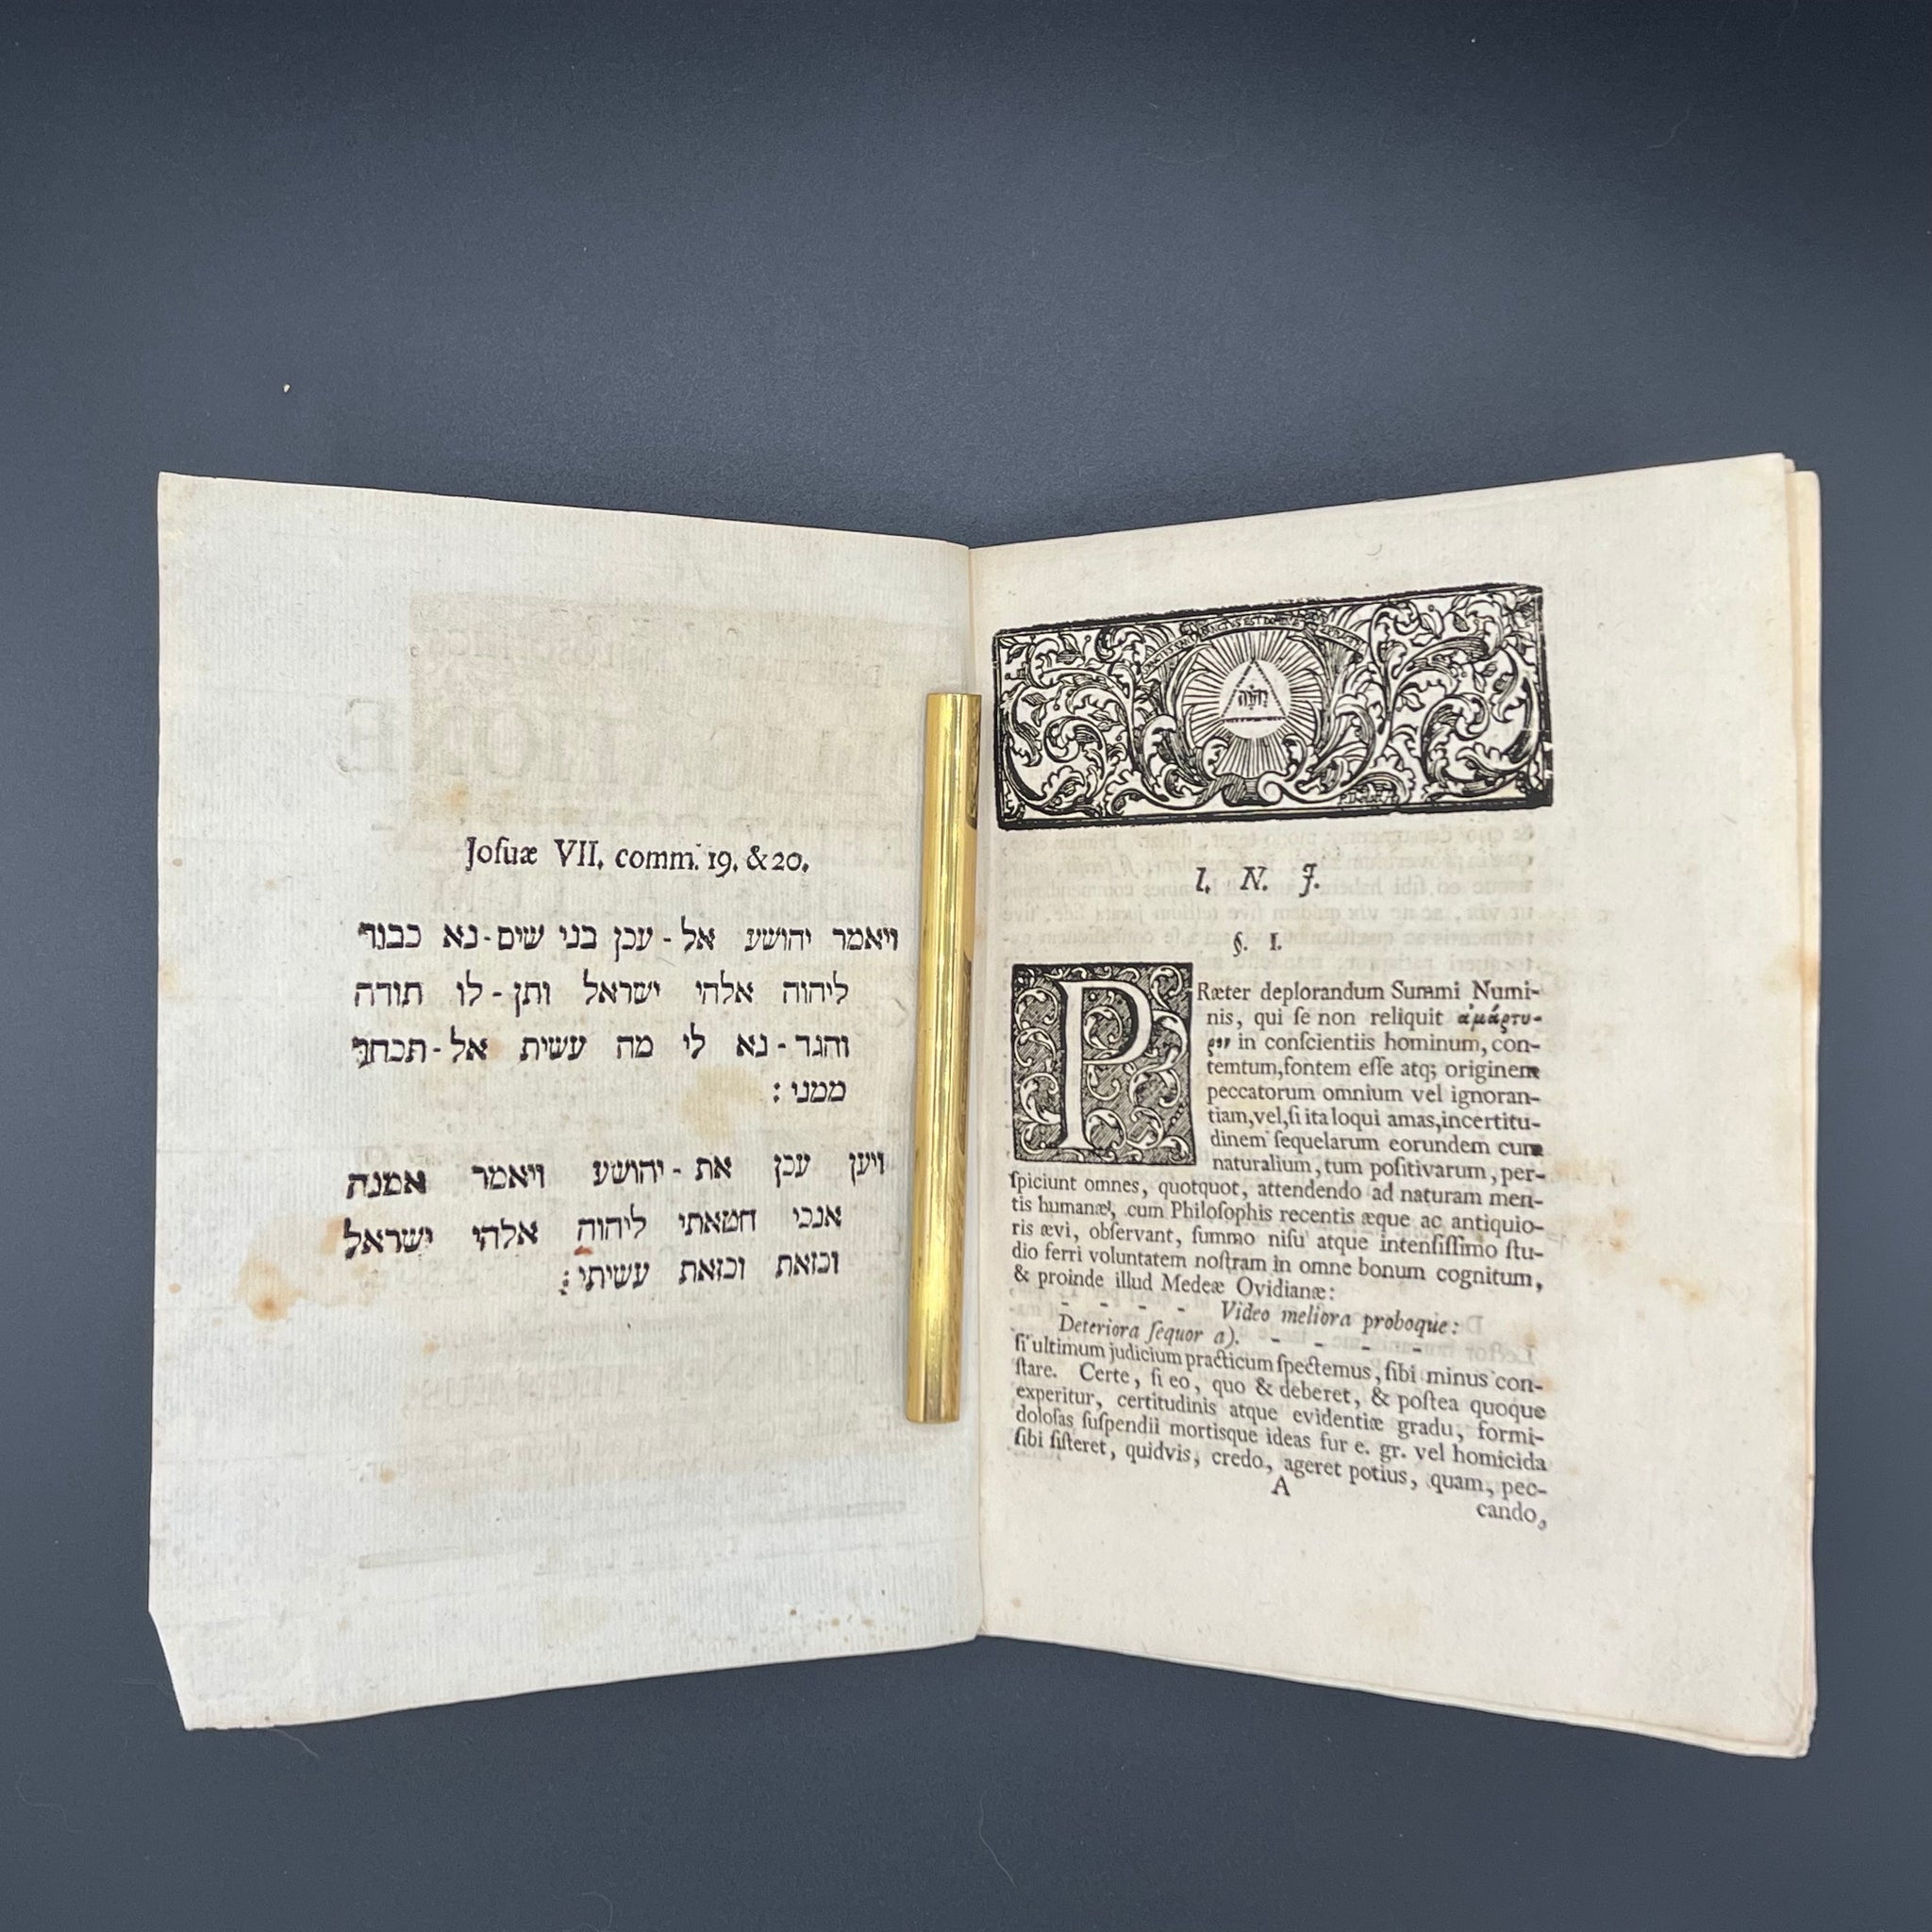 Josuæ VII. comm. 19. & 20.
ויאמר יהושע אל-עכן בני שים-נא כבוד
ליהוה אלהי ישראל ותן-לו תודה
והגד-נא לי מה עשית אל-תכחד
ממני :
ויען עכן את-יהושע ויאמר אמנה
אנכי חטאתי ליהוה אלהי ישראל
וכזאת וכזאת עשיתי :
SANCTUS EST DOMINUS
יהוה
I. N. J.
§. I.
PRæter deplorandum Summi Numi-
nis, qui ſe non reliquit ἀμάρτυ-
ρον in conſcientiis hominum, con-
temtum, fontem eſſe atq; originem
peccatorum omnium vel ignoran-
tiam, vel, ſi ita loqui amas, incertitu-
dinem ſequelarum eorundem cum
naturalium, tum poſitivarum, per-
ſpiciunt omnes, quotquot, attendendo ad naturam men-
tis humanæ, cum Philoſophis recentis æque ac antiquio-
ris ævi, obſervant, ſummo niſu atque intenſiſſimo ſtu-
dio ferri voluntatem noſtram in omne bonum cognitum,
& proinde illud Medeæ Ovidianæ:
- - - - Video meliora proboque:
Deteriora ſequor a). - - - -
ſi ultimum judicium practicum ſpectemus, ſibi minus con-
ſtare. Certe, ſi eo, quo & deberet, & poſtea quoque
experitur, certitudinis atque evidentiæ gradu, formi-
doloſas ſuſpendii mortisque ideas fur e. gr. vel homicida
ſibi ſiſteret, quidvis, credo, ageret potius, quam, pec-
A
cando,